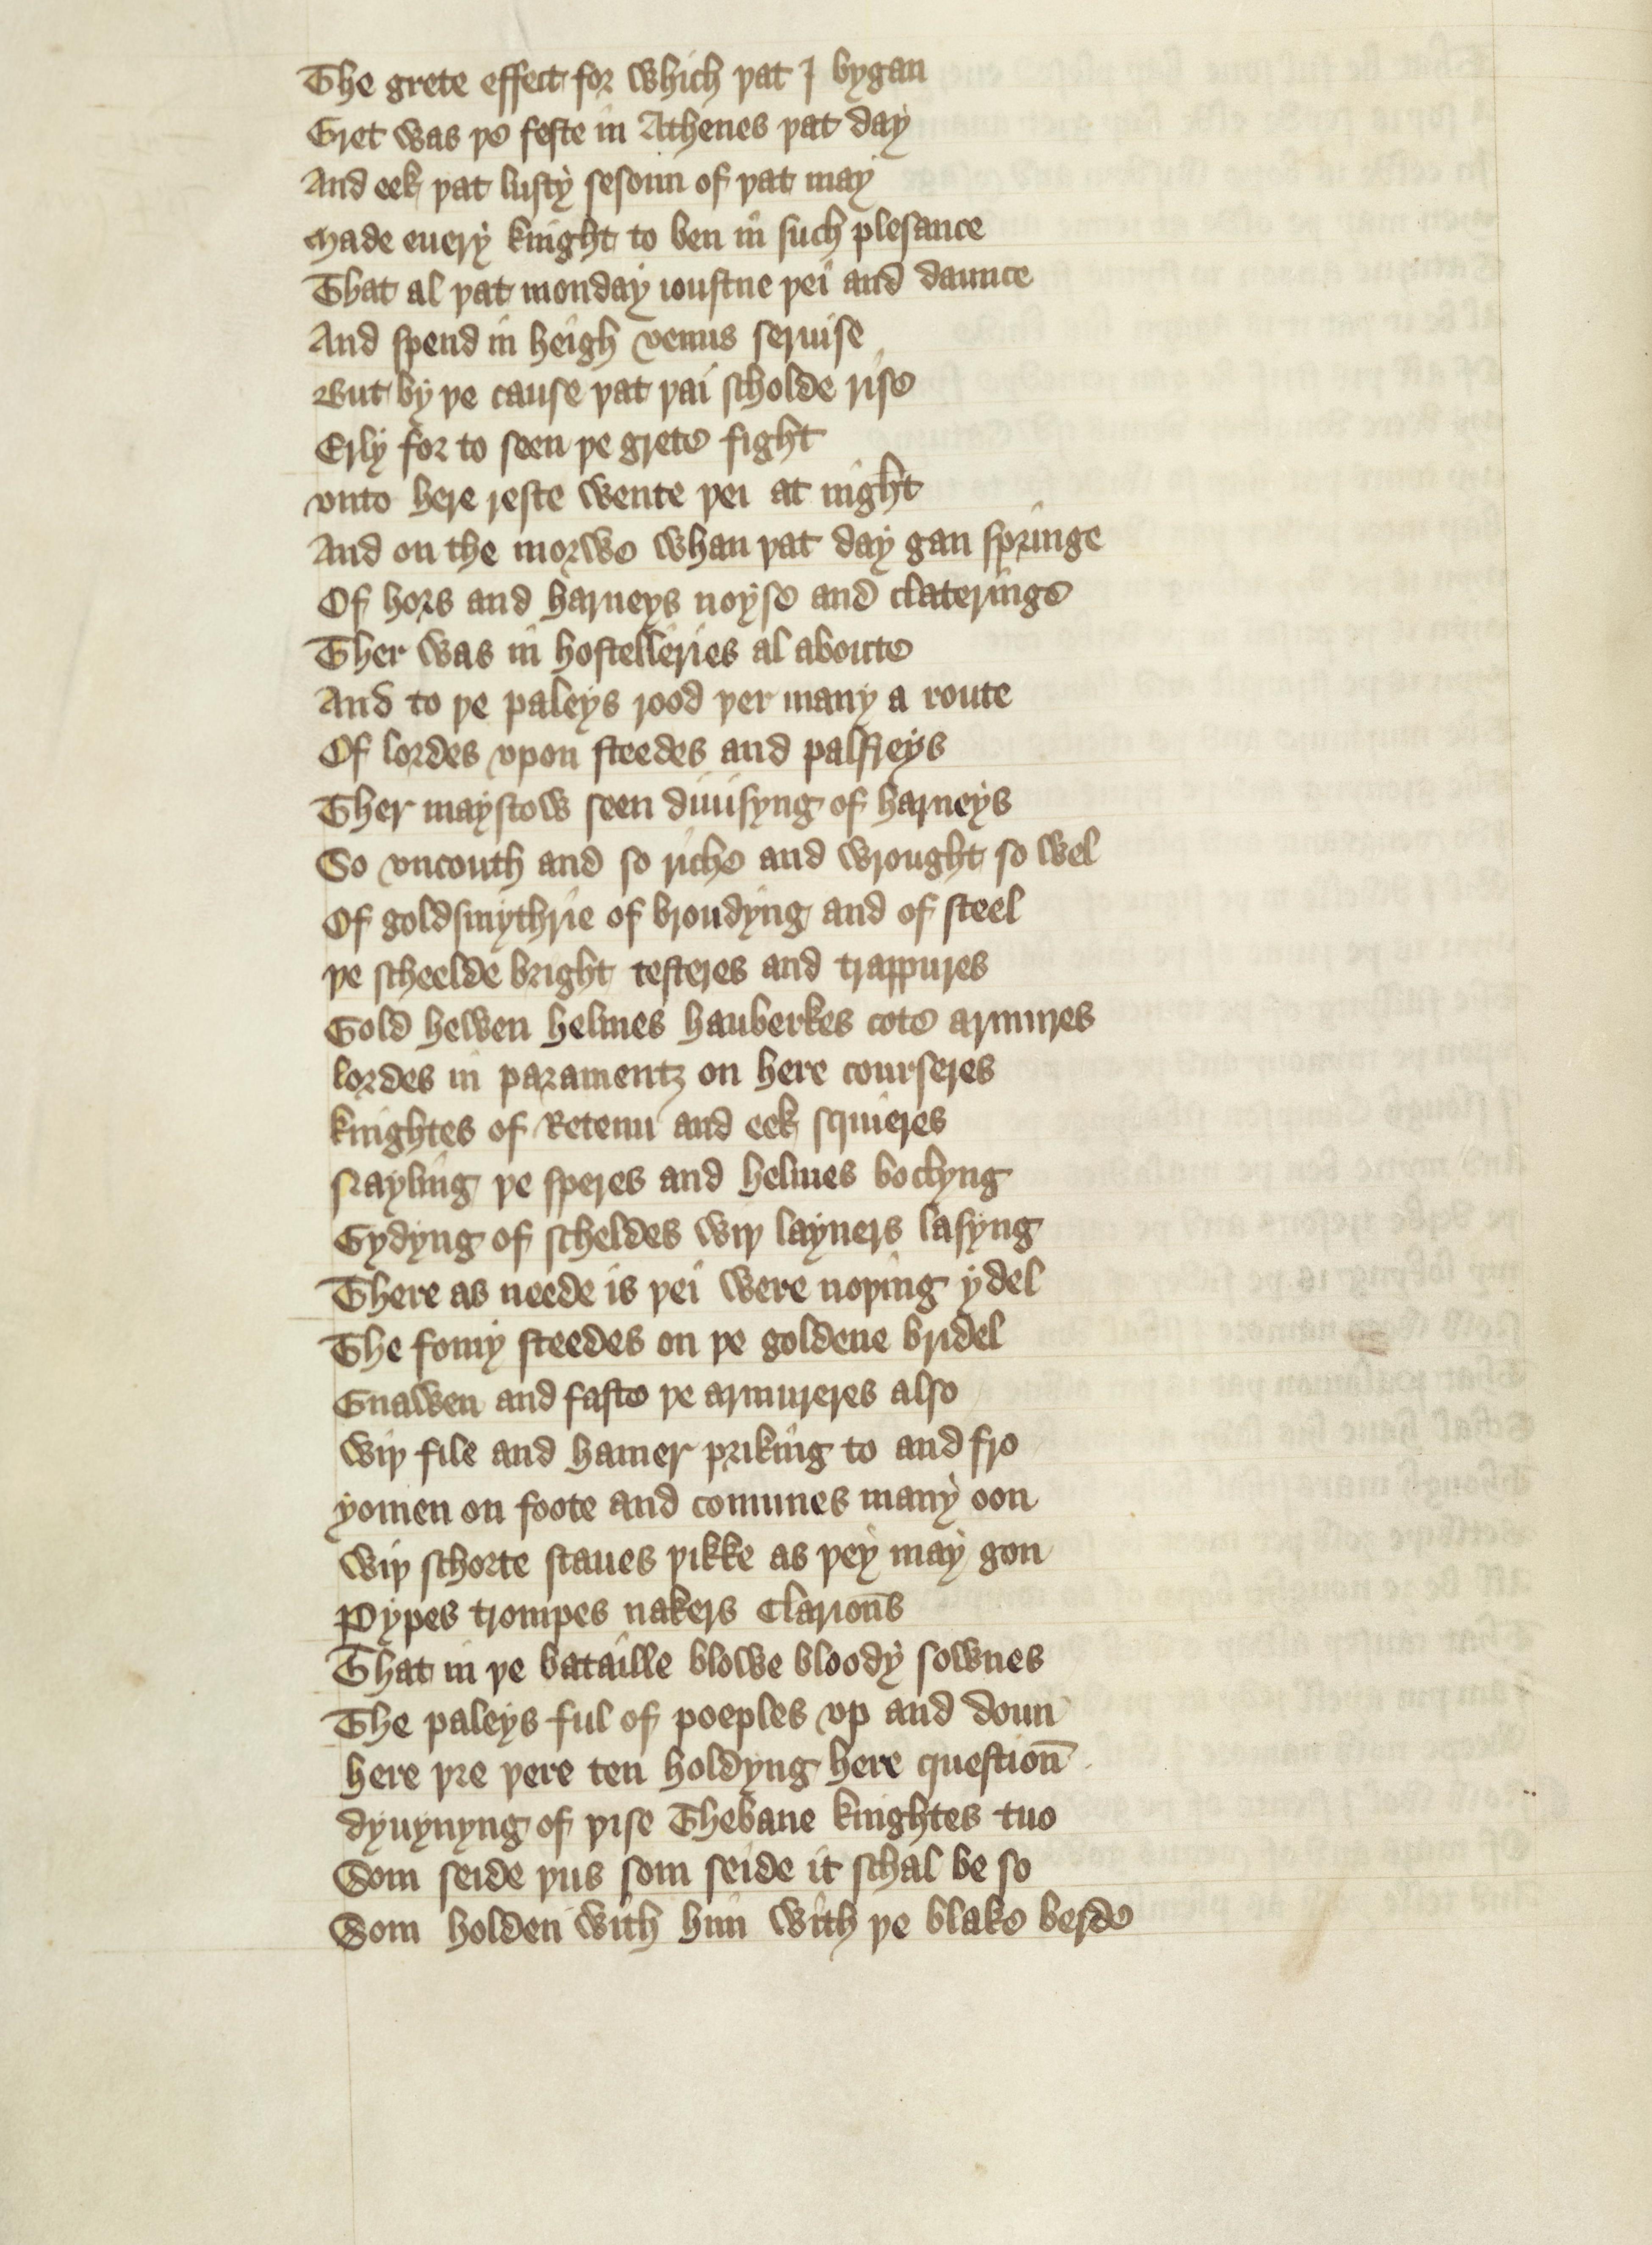 The grete effect for which þat I bygan
Gret was þe feste in Athenes þat day
And eek þat lusty sesoun of þat may
Made euery knight to ben in such plesance
That al þat monday ioustne þei and daunce
And spend in heigh venus seruise
But by þe cause þat þai scholde rise
Erly for to seen þe grete fight
vnto here reste wente þei at night
And on the morwe whan þat day gan springe
Of hors and harneys noyse and clateringe
Ther was in hostelleries al aboute
And to þe paleys rood þer many a route
Of lordes vpon steedes and palfreys
Ther maystow seen diuisyng of harneys
So vncouth and so riche and wrought so wel
Of goldsmythrie of broudyng and of steel
þe scheelde bright testeres and trappures
Gold hewen helmes hauberkes cote armures
lordes in paramentz on here courseres
knightes of Retenu and eek squieres
rayling þe speres and helmes boclyng
Gydyng of scheldes wiþ layners lasyng
There as neede is þei were noþing ydel
The fomy steedes on þe goldene bridel
Gnawen and faste þe armureres also
wiþ file and hamer priking to and fro
yomen on foote and comunes many oon
wiþ schorte staues þikke as þey may gon
Pypes trompes nakers Clariou̅s
That in þe bataille blowe bloody sownes
The paleys ful of poeples vp and doun
here þre þere ten holdyng here questiou̅
dyuynyng of þise Thebane knightes tuo
Som seide þus som seide it schal be so
Som holden with him with þe blake berde